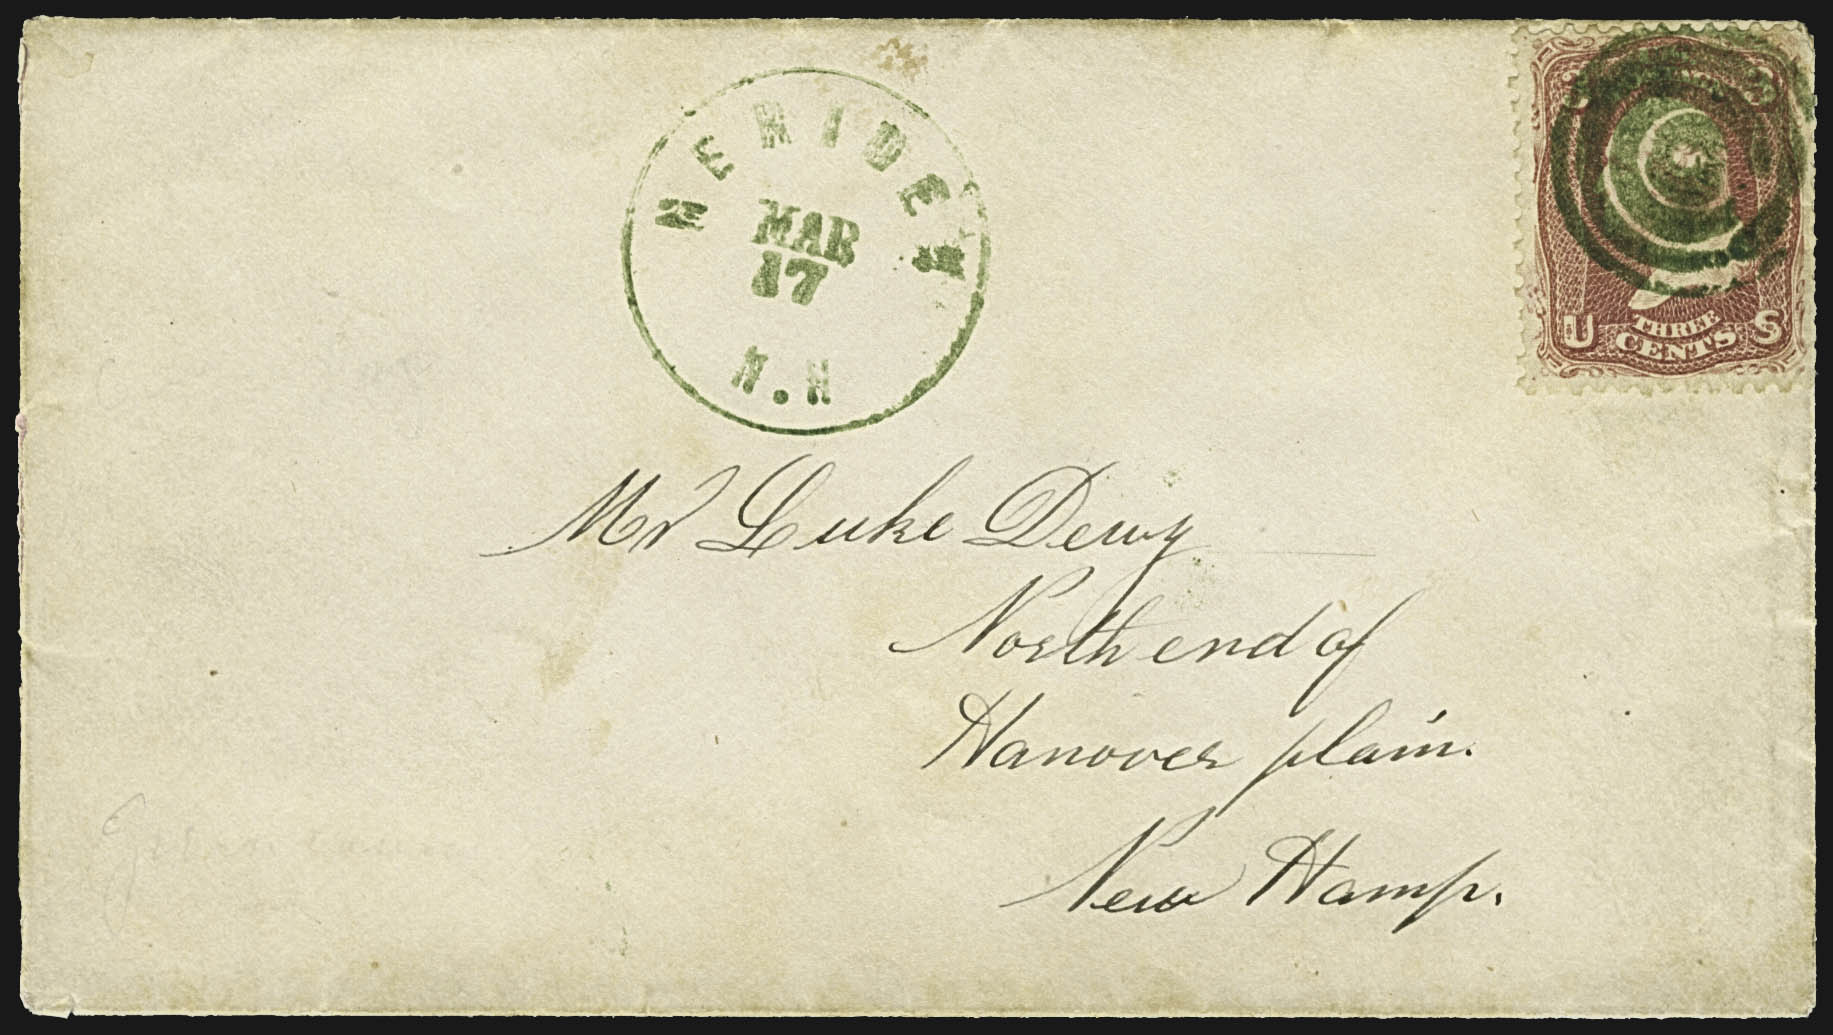 MERIDEN
MAR
17
N.H
U THREE S
CENTS
Mr Luke Dewy
North end of
Hanover plain.
New Hamp.